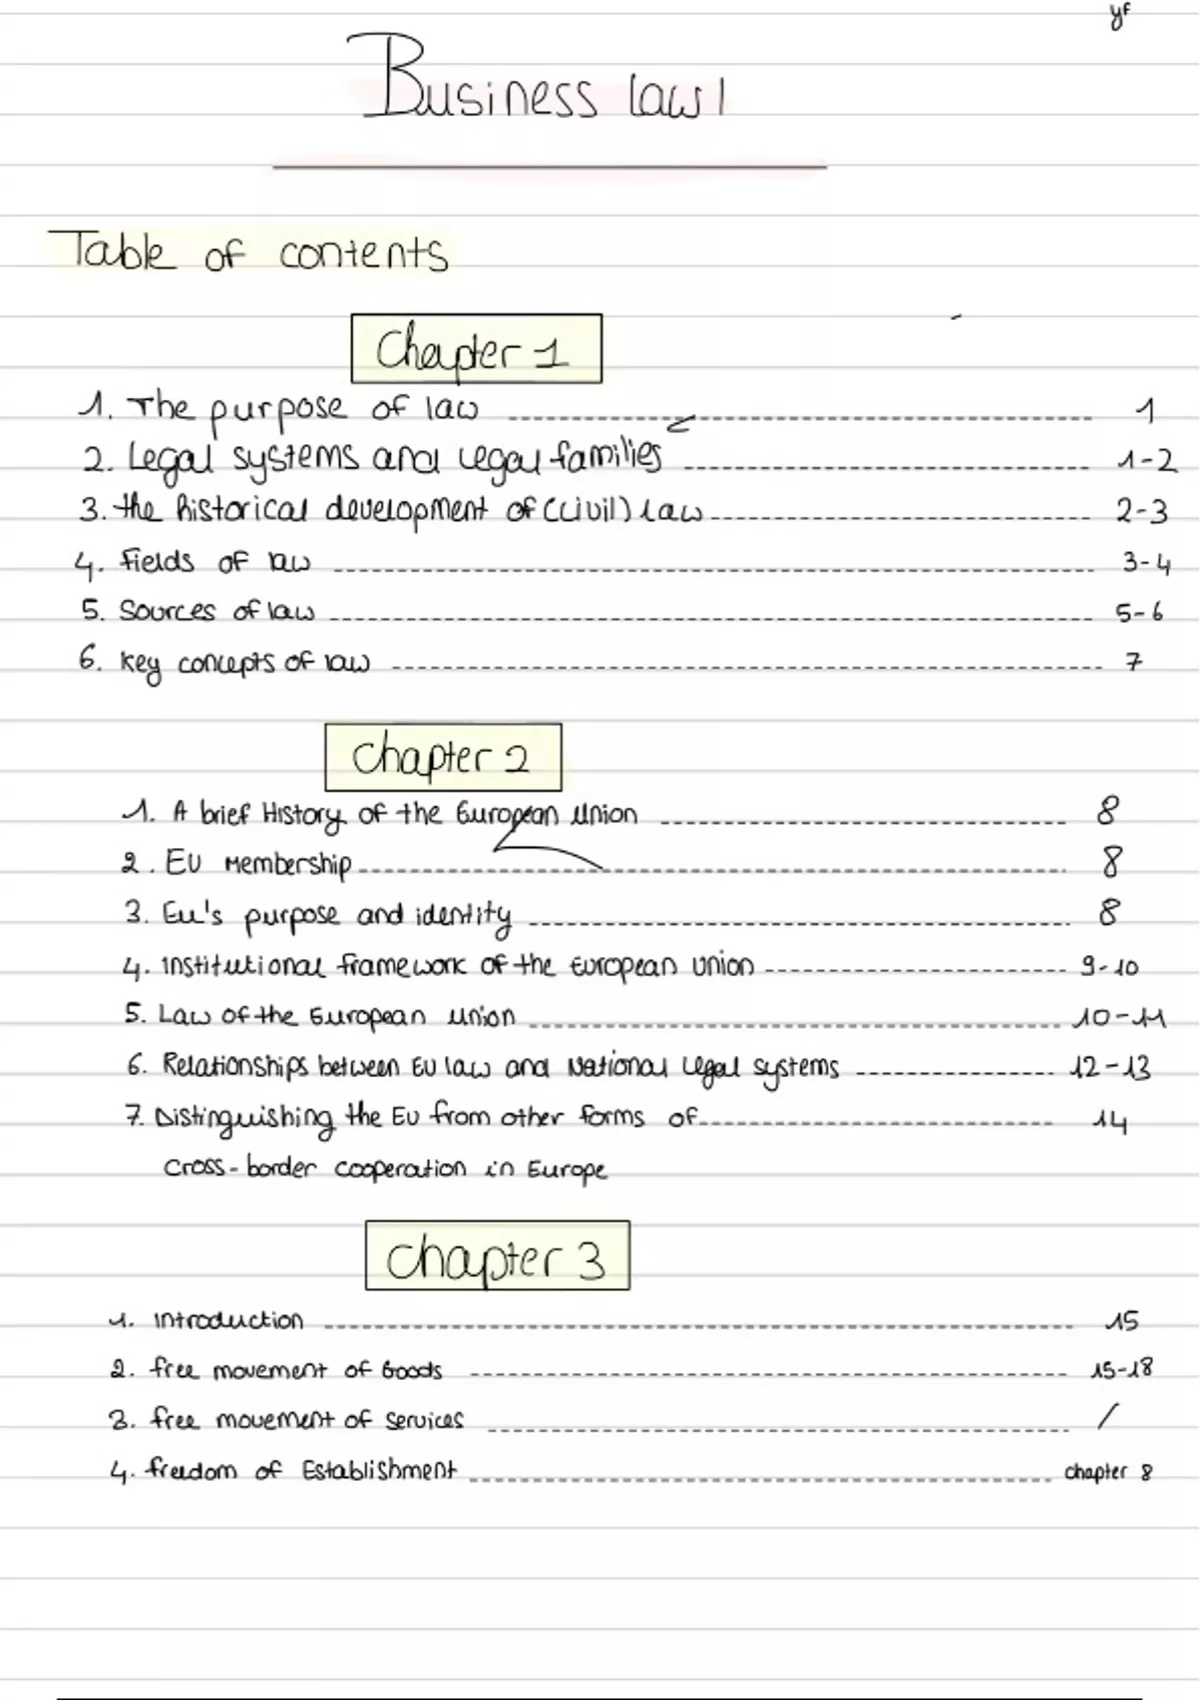 yf
Business law 1
Table of contents
Chapter 1
1. The purpose of law ---------- 1
2. Legal systems and legal families ---------- 1-2
3. the historical development of (civil) law ---------- 2-3
4. fields of law ---------- 3-4
5. Sources of law ---------- 5-6
6. key concepts of law ---------- 7
Chapter 2
1. A brief History of the European Union ---------- 8
2. EU Membership ---------- 8
3. Eu's purpose and identity ---------- 8
4. institutional framework of the European Union ---------- 9-10
5. Law of the European Union ---------- 10-11
6. Relationships between EU law and National legal systems ---------- 12-13
7. Distinguishing the EU from other forms of ---------- 14
cross-border cooperation in Europe
chapter 3
1. introduction ---------- 15
2. free movement of Goods ---------- 15-18
3. free movement of services ---------- /
4. freedom of Establishment ---------- chapter 8